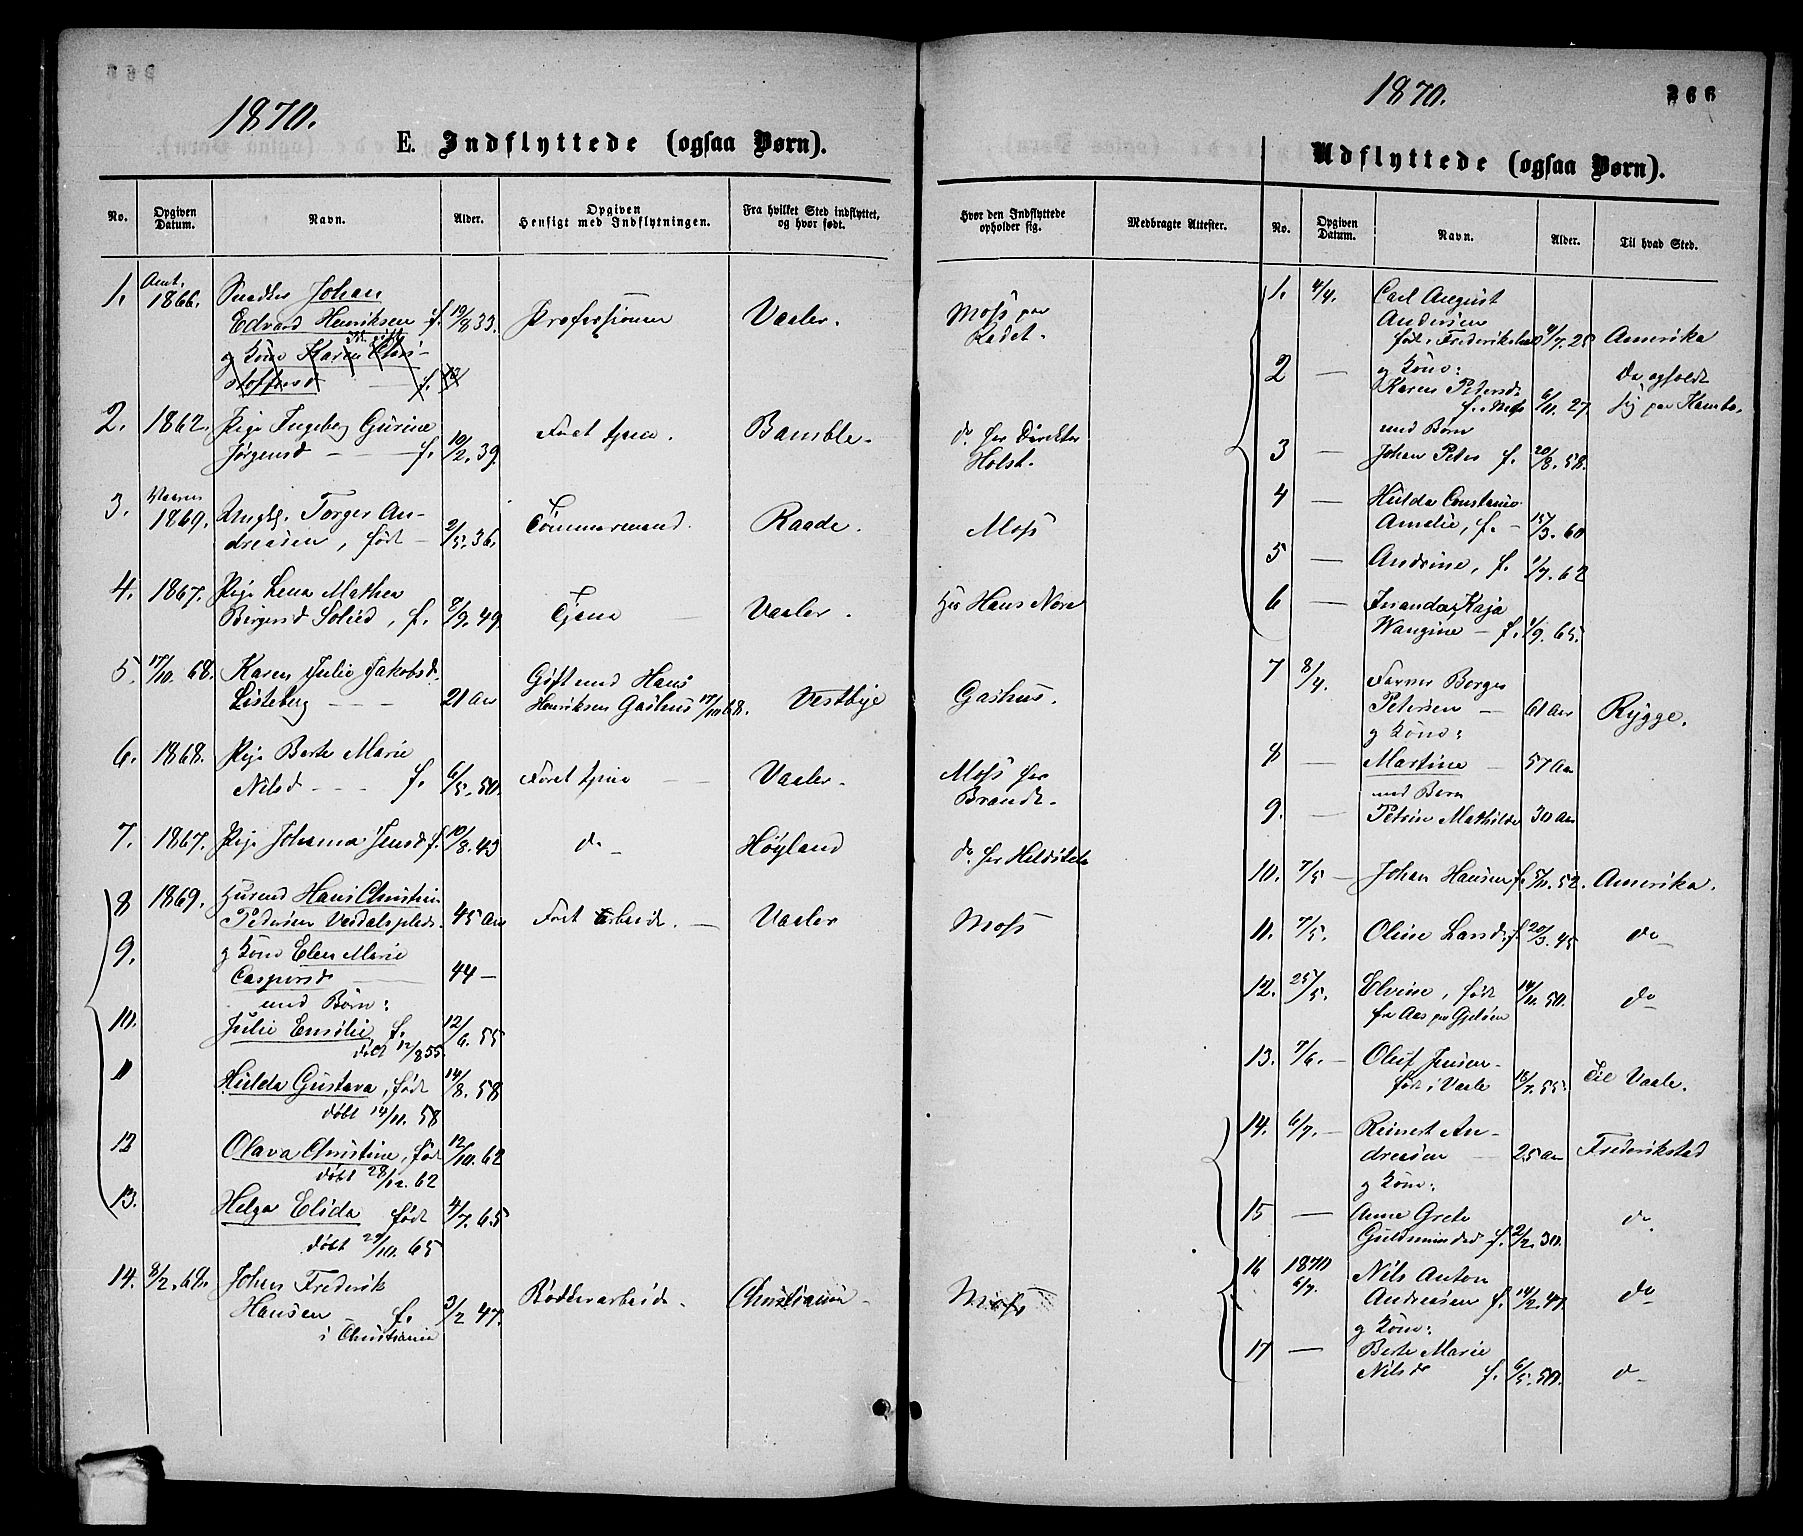 1870.
E. Indflyttede (ogsaa Børn).
No.
Opgiven Datum.
Navn.
Alder.
Opgiven Hensigt med Indflytningen.
Fra hvilket Sted indflyttet, og hvor født.
Hvor den Indflyttede opholder sig.
Medbragte Attester.
1. 1866. Johan
Edvard Henriksen f. 19/8 33. Professionen Vaaler. Moss paa
og Kone Karen Chri-
stoffersd f.
2. 1862. Pige Ingeborg Gurine Foret tjene. Bamble. do hos Direktør
Jørgensd f. 10/2 39. Holst.
3. 1869. Ungk. Torger An- Tømmermand. Raade. Moss
dreasen, født 2/5 36.
4. 1867. Pige Lena Mathea Tjene Vaaler. Hos Hans Nore
Birgersd Solied, f. 9/9. 49.
5. 17/10. 68. Karen Julie Jakobsd. Gift med Hans Vestbye Gashus.
Listeberg 21 Aar Henriksen Gashus 17/10 68.
6. 1868. Pige Berte Marie Foret tjene Vaaler. Moss hos
Nilsd f. 6/5. 50. Brandt.
7. 1867. Pige Johanna Jensd f. 10/8. 43 do Høyland do hos
8 1869. Husmd Hans Christian
Pedersen 45 Aar Foret Arbeide. Vaaler Moss
9. og Kone Elen Marie
Caspersd 44
med Børn:
10. Julie Emilie f. 12/6. 55
døbt 12/8 55.
11 Hulda Gustava, født 14/8. 58
døbt 14/11. 58
12 Olava Christine, fød 12/10. 62
døbt 28/12. 62
13. Helga Elida født 4/7. 65
døbt 29/10. 65
14. 8/2. 69. Johan Frederik Bødkerarbeide. Christiania Moss
Hansen f. 3/2 47.
i Christiania
1870.
266
Udflyttede (ogsaa Børn).
No.
Opgiven Datum.
Navn.
Alder.
Til hvad Sted.
1. 4/4. Carl August
Andersen
født i Frederikshald 9/7. 25 Amerika
2 og Kone:
Karen Petersd
f. i Moss 6/11. 27.
med Børn
3 Johan Peter f. 20/8. 58.
4 Hulda Constance
Amalie, f. 15/3. 60
5 Andrine, f. 1/7. 62
6 Kaja
Wangine f. 1/9. 65.
7 8/4. Børge
Petersen 61 Aar Rygge.
og Kone:
8 Martine 57 Aar
med Børn
9. Petrine Mathilde 30 Aar
10. 7/5 Johan Hansen f. 5/11. 52. Amerika.
11. 7/5. Oline f. 20/3. 45 do
12. 25/5. Elvine, født 14/11. 50. do
fra Aas paa Gjeløen
13. 7/6. Oluf Jensen
født i Vaale 18/7. 55. Til Vaale.
14. 6/7. Reinert An-
dreasen 25 Aar Frederikstad
og Kone:
15 Anne Grete
f. 2/2. 30. do
16 1870 6/7. Nils Anton
Andreasen f. 14/2. 47. do
og Kone:
17 Berte Marie
Nilsd f. 6/5. 50. do